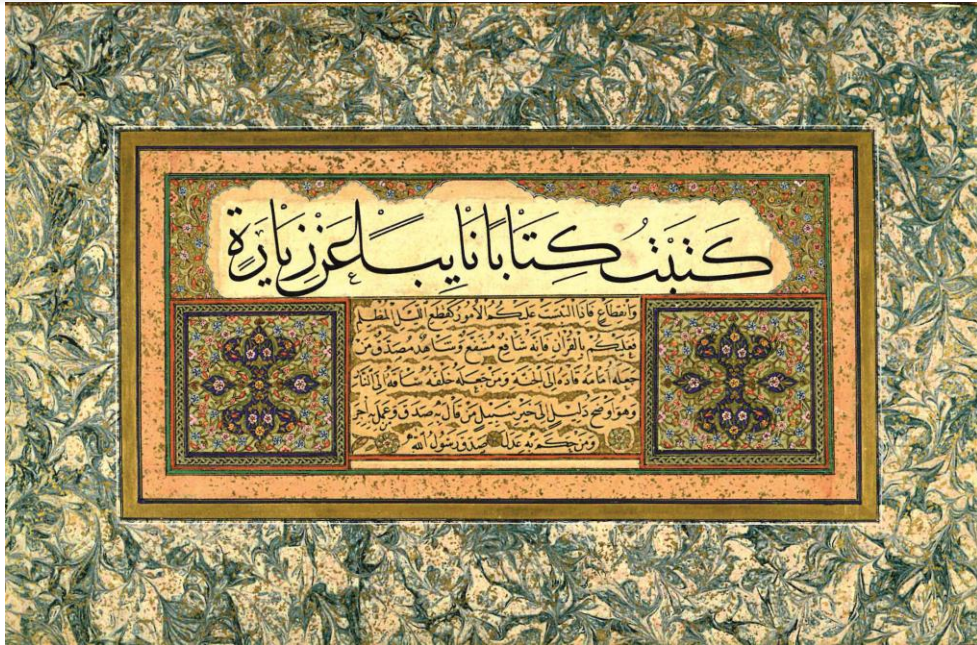 كَتَبْتُ كِتَابًا نَايِبًا عَنْ زِيَارَةٍ
وانقطاع فاذا التبست عليكم الامور كقطع الليل المظلم
فعليكم بالقران فانه شافع مشفع وشاهد مصدق فمن
جعله امامه قاده الى الجنة ومن جعله خلفه ساقه الى النار
وهو اوضح دليل الى خير سبيل من قال به صدق ومن عمل به اجر
ومن حكم به عدل صدق رسول الله